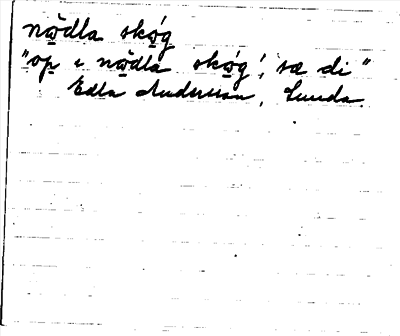 nω̆dla skọ́g
"ọp ı nω̆dla skọ́g, sæ di"
Edla Andersson, Lunda.